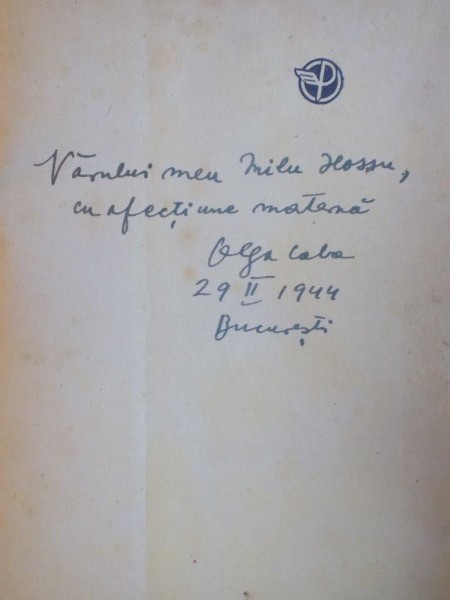 Vărului meu Milu Hossu,
cu afecțiune maternă
Olga Caba
29 II 1944
București